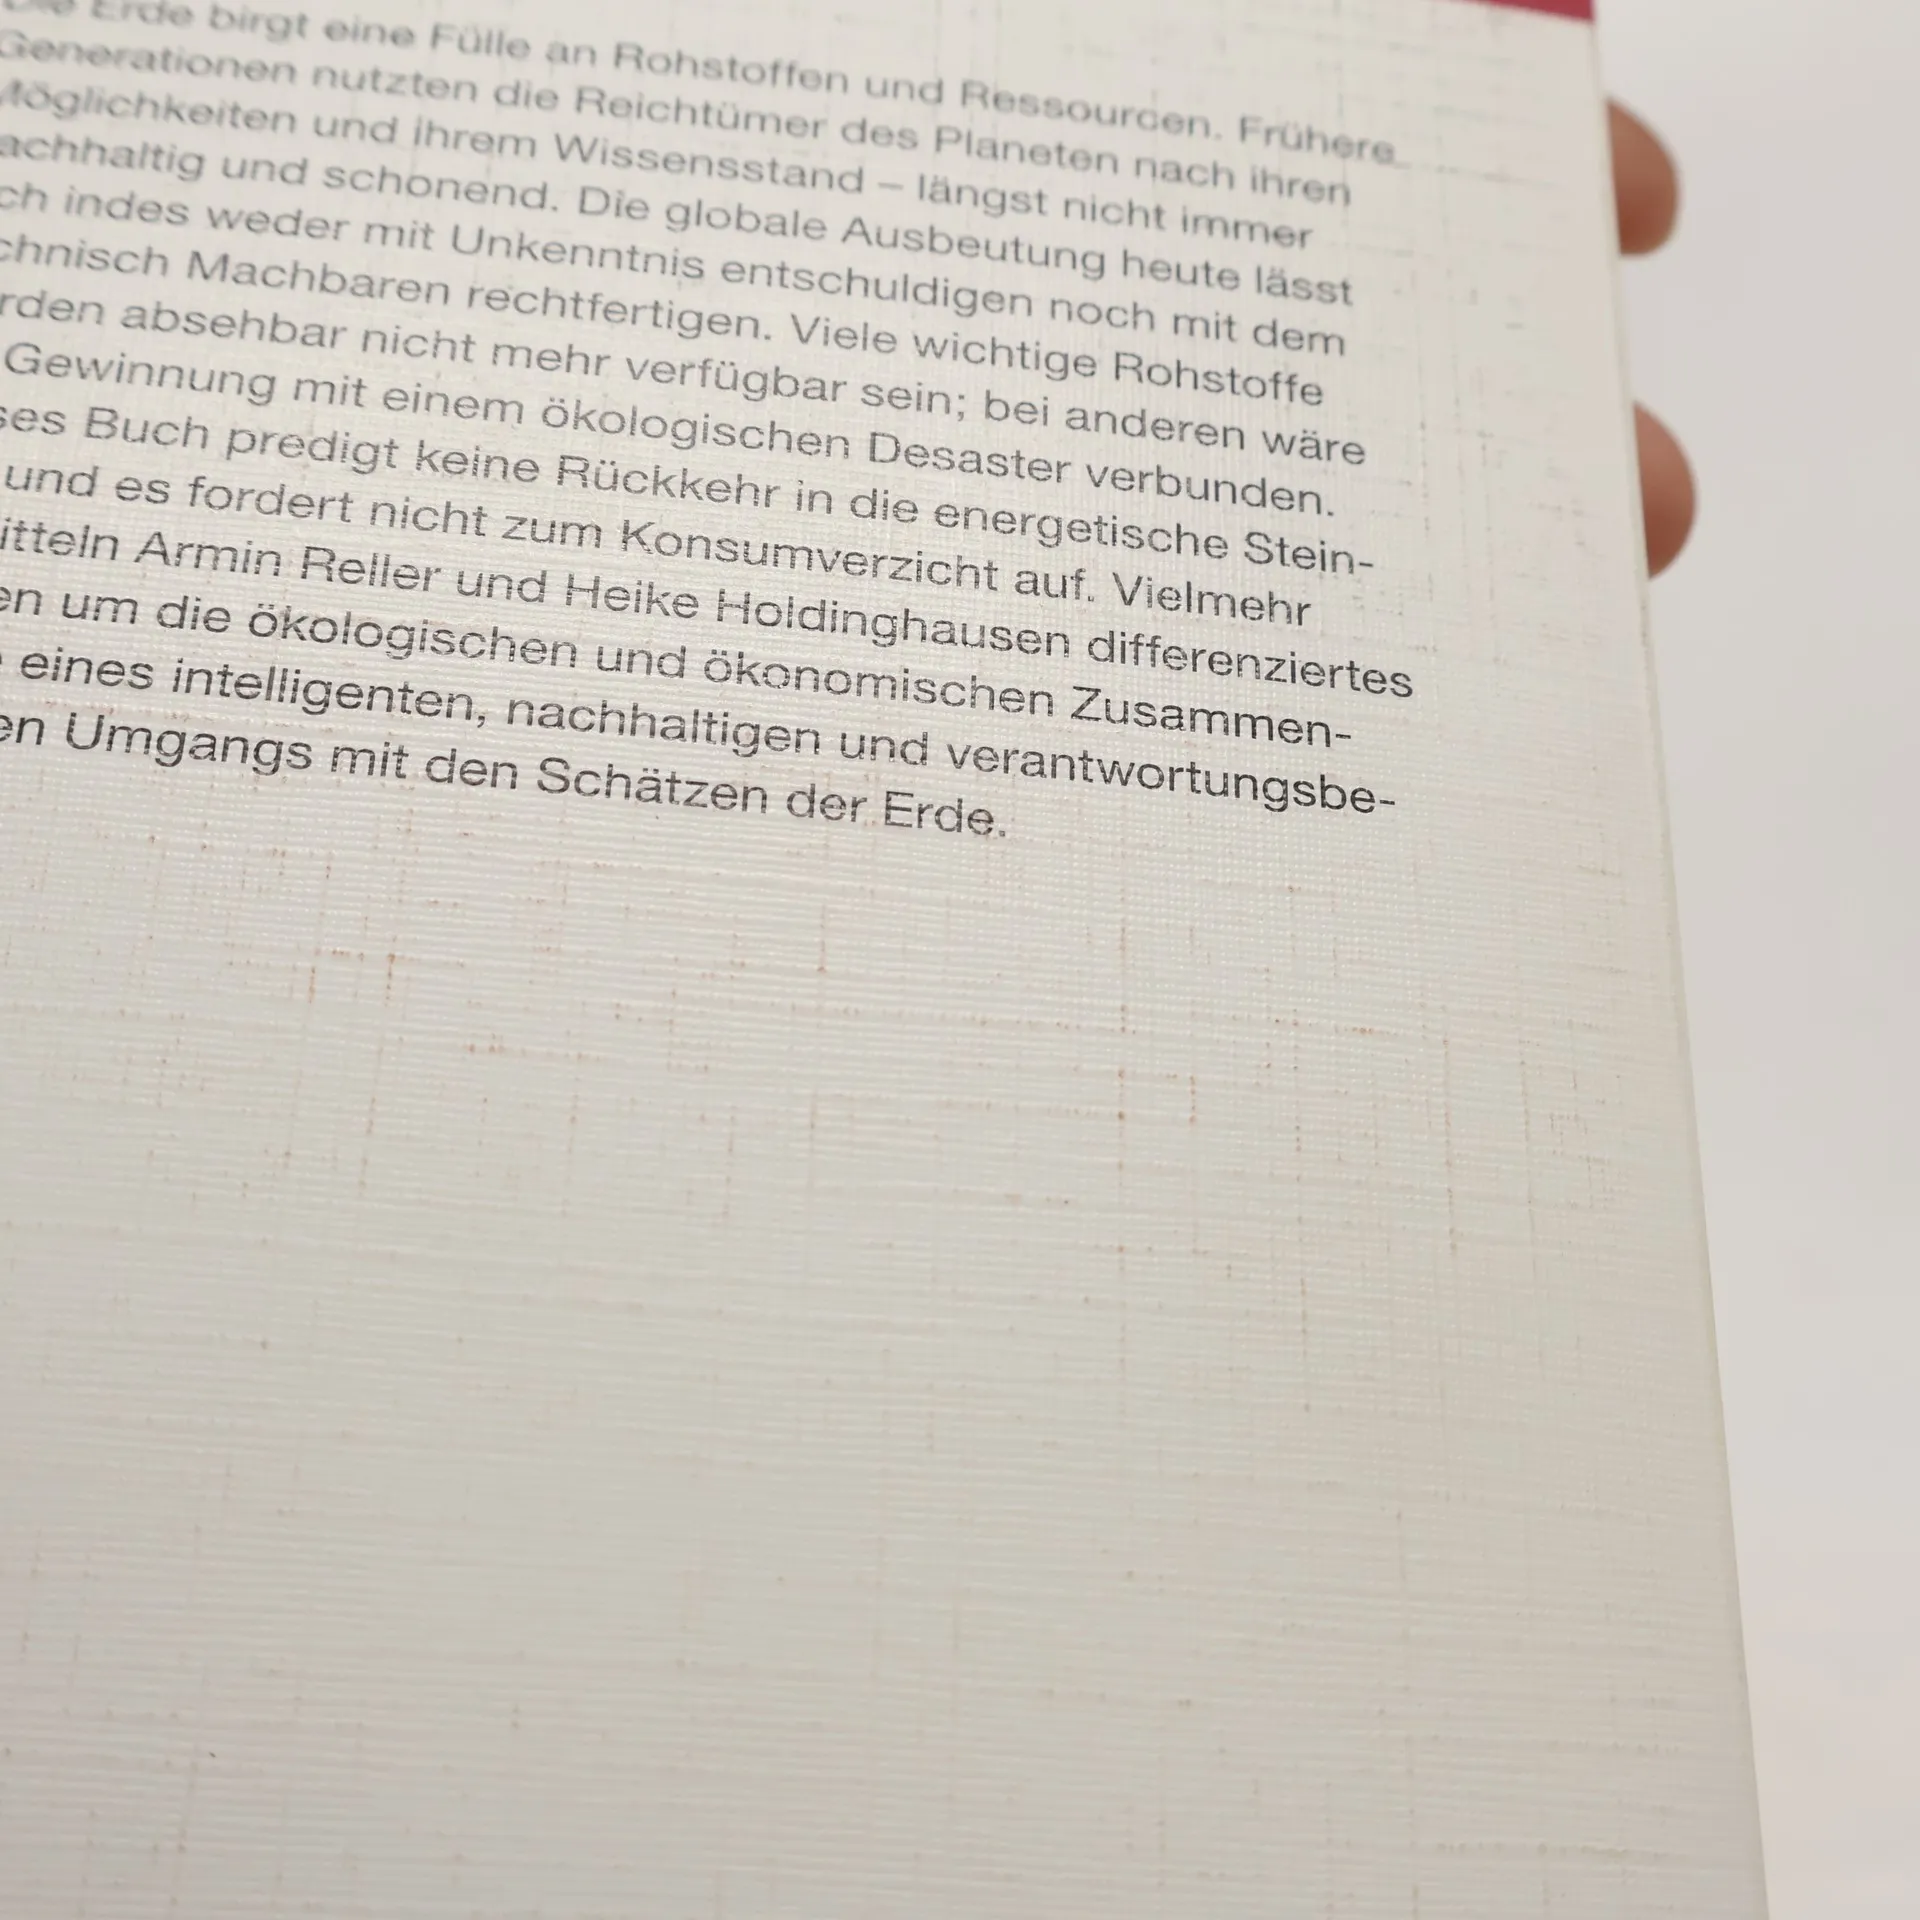 Die Erde birgt eine Fülle an Rohstoffen und Ressourcen. Frühere
Generationen nutzten die Reichtümer des Planeten nach ihren
Möglichkeiten und ihrem Wissensstand – längst nicht immer
achhaltig und schonend. Die globale Ausbeutung heute lässt
ch indes weder mit Unkenntnis entschuldigen noch mit dem
chnisch Machbaren rechtfertigen. Viele wichtige Rohstoffe
rden absehbar nicht mehr verfügbar sein; bei anderen wäre
Gewinnung mit einem ökologischen Desaster verbunden.
ses Buch predigt keine Rückkehr in die energetische Stein-
und es fordert nicht zum Konsumverzicht auf. Vielmehr
itteln Armin Reller und Heike Holdinghausen differenziertes
en um die ökologischen und ökonomischen Zusammen-
eines intelligenten, nachhaltigen und verantwortungsbe-
en Umgangs mit den Schätzen der Erde.